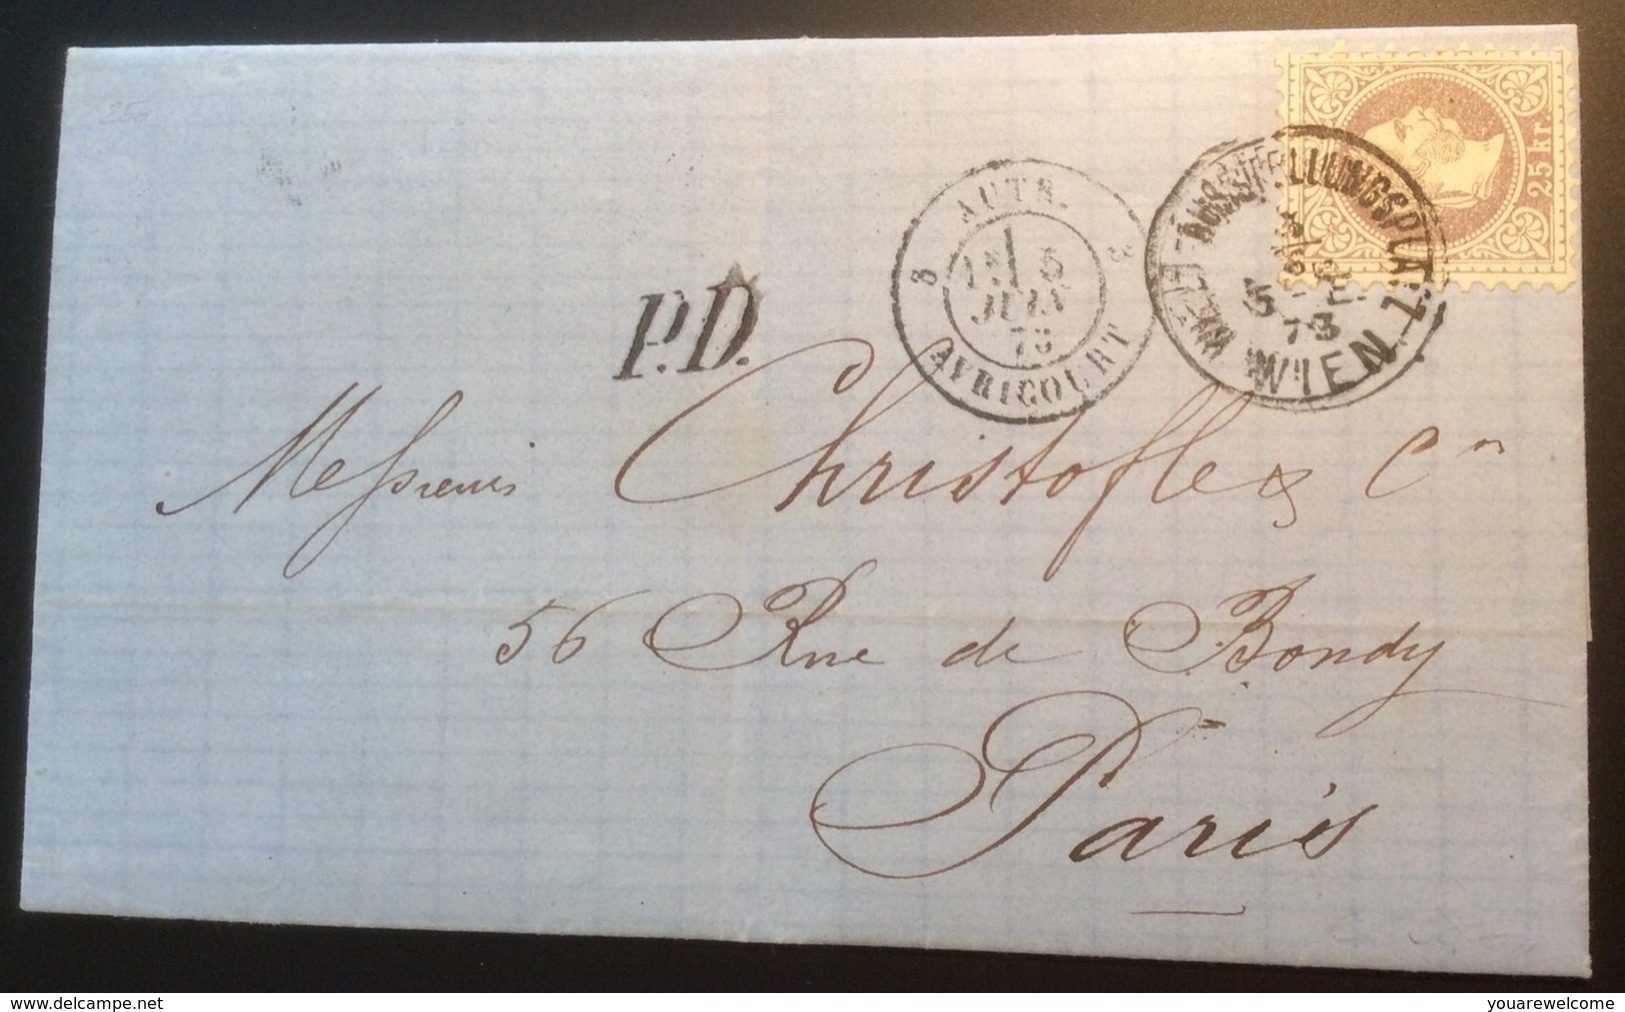 250
25 kr.
WELT-AUSSTELLUNGSPLATZ
5 73
WIEN
AUTR.
3 3
5
JUIN
73
AVRICOURT
P.D.
Messieurs Christofle & Cie
56 Rue de Bondy
Paris
www.delcampe.net
youarewelcome